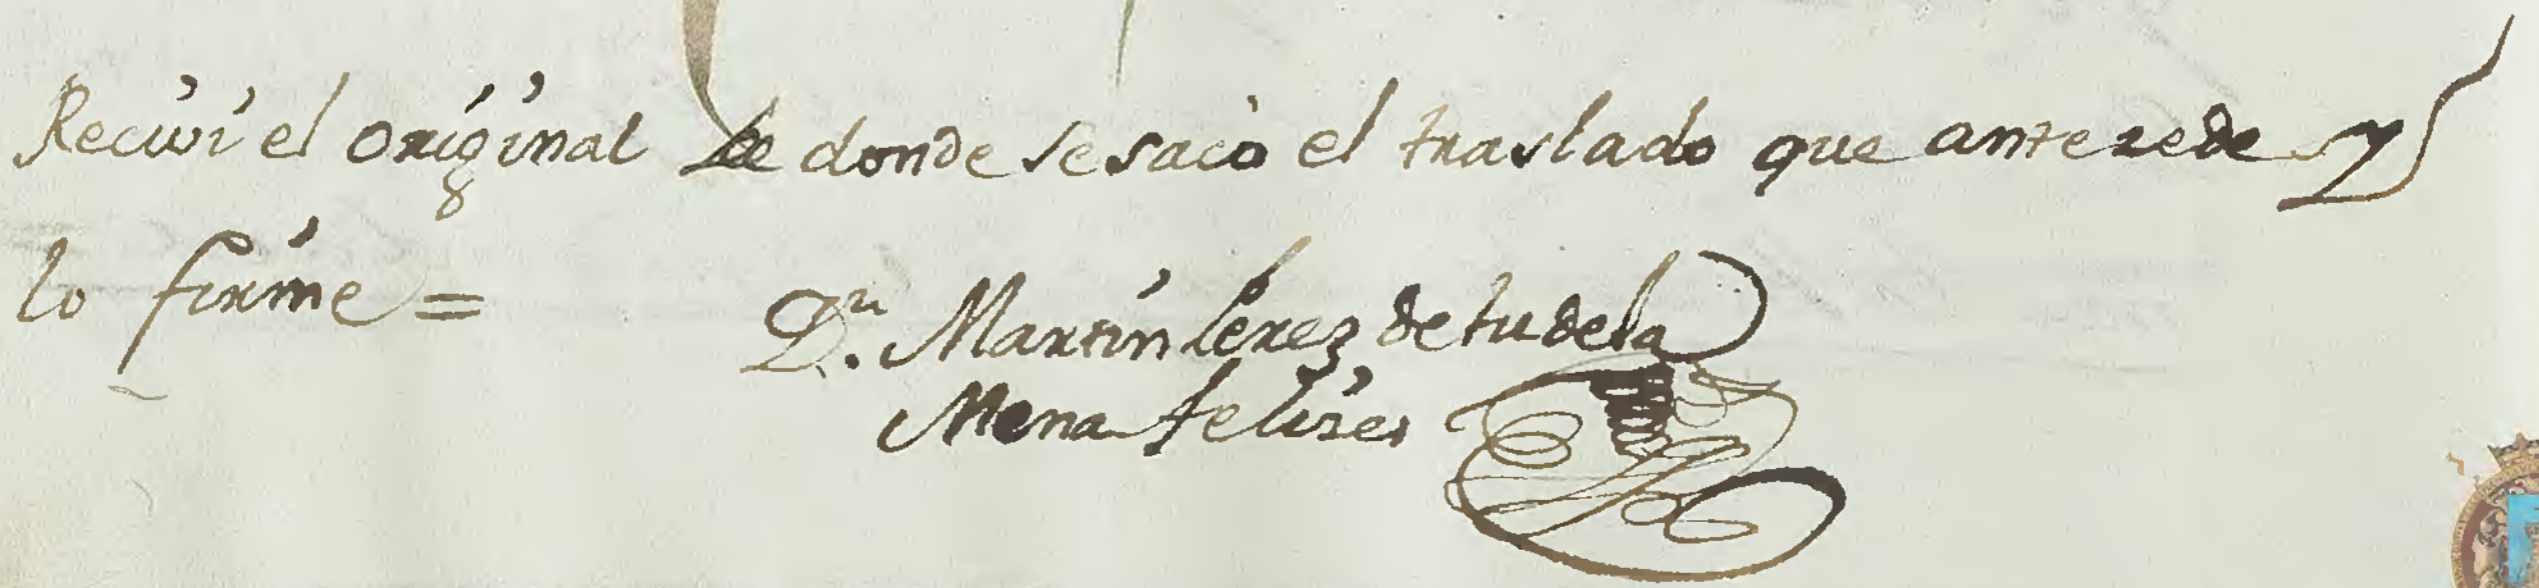 Recivi el original de donde se sacò el traslado que antezede y
lo firme =
Dn. Martin Perez de tudela
Mena felizes